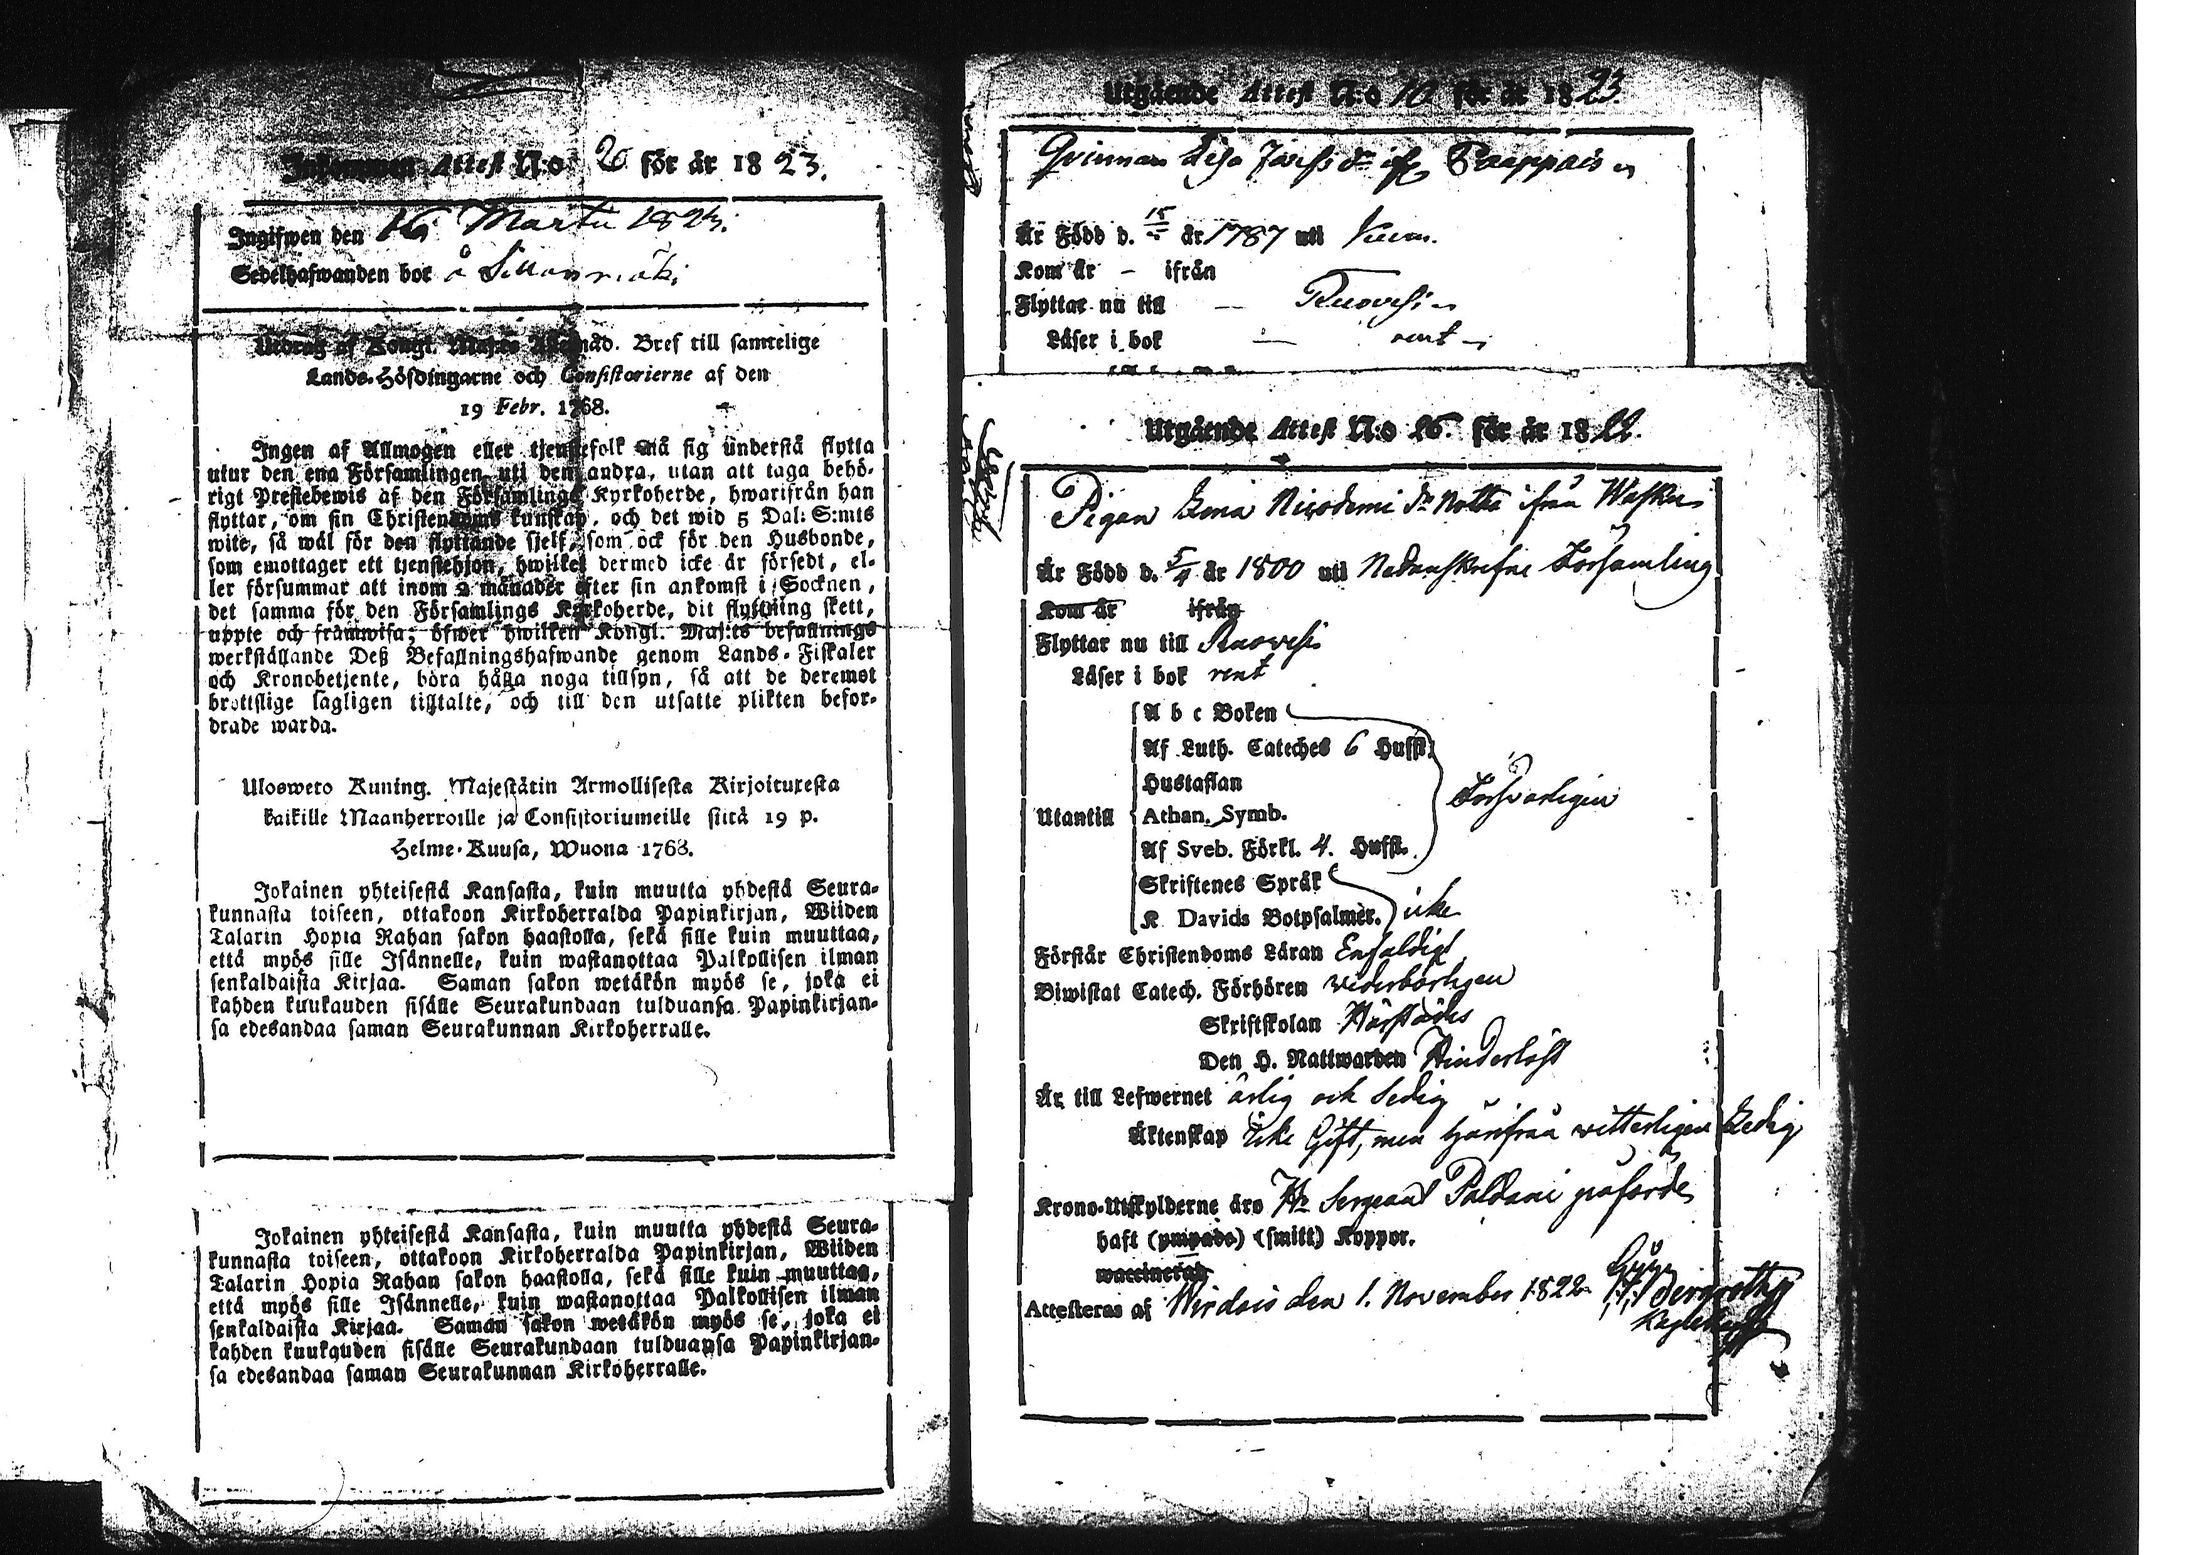 Inkommen Attest N:o 26 för år 1823.
Ingifwen den 16 Martii 1823.
Sedelhafwanden bor å
Utdrag af Kongl. Maj:ts Allernåd. Bref till samtelige
Lands-Höfdingarne och Consistorierne af den
19 Febr. 1768.
Ingen af Allmogen eller tjenstefolk må sig understå flytta
utur den ena Församlingen uti den andra, utan att taga behö-
rigt Prestebewis af den Församlings Kyrkoherde, hwarifrån han
flyttar, om sin Christendoms kunskap, och det wid 5 Dal: S:mts
wite, så wäl för den flyttande sjelf, som ock för den Husbonde,
som emottager ett tjenstehjon, hwilket dermed icke är försedt, el-
ler försummar att inom 2 månader efter sin ankomst i Socknen,
det samma för den Församlings Kyrkoherde, dit flyttning skett,
uppte och framwisa; öfwer hwilken Kongl. Maj:ts befallnings
werkställande Deß Befallningshafwande genom Lands-Fiskaler
och Kronobetjente, böra hålla noga tillsyn, så att de deremot
brottslige lagligen tilltalte, och till den utsatte plikten befor-
drade warda.
Ulosweto Kuning. Majestätin Armollisesta Kirjoituxesta
kaikille Maanherroille ja Consistoriumeille siitä 19 p.
Helme-Kuusa, Wuona 1768.
Jokainen yhteisestä Kansasta, kuin muutta yhdestä Seura-
kunnasta toiseen, ottakoon Kirkoherralda Papinkirjan, Wiiden
Talarin Hopia Rahan sakon haastolla, sekä sille kuin muuttaa,
että myös sille Isännelle, kuin wastanottaa Palkollisen ilman
senkaldaista Kirjaa. Saman sakon wetäkön myös se, joka ei
kahden kuukauden sisälle Seurakundaan tulduansa Papinkirjan-
sa edesandaa saman Seurakunnan Kirkoherralle.
Jokainen yhteisestä Kansasta, kuin muutta yhdestä Seura-
kunnasta toiseen, ottakoon Kirkoherralda Papinkirjan, Wiiden
Talarin Hopia Rahan sakon haastolla, sekä sille kuin muuttaa,
että myös sille Isännelle, kuin wastanottaa Palkollisen ilman
senkaldaista Kirjaa. Saman sakon wetäkön myös se, joka ei
kahden kuukauden sisälle Seurakundaan tulduansa Papinkirjan-
sa edesandaa saman Seurakunnan Kirkoherralle.
Utgående Attest N:o 10 för år 1823.
Qvinnan Lisa
Är Född d. 15 år 1787 uti
Kom år - ifrån
Flyttar nu till - Ruovesi
Läser i bok - rent
Utgående Attest N:o 26. för år 1822.
Pigan Lena Nicodemi Dr Notta ifrån Waskus
Är Född d. 5/4 år 1800 uti Nedanskrefne Församling
Kom år ifrån
Flyttar nu till Ruovesi
Läser i bok rent
A b c Boken
Af Luth. Cateches 6 Hufst.
Hustaflan
Utantill Athan. Symb. Försvarligen
Af Sveb. Förkl. 4. Hufst.
Skriftenes Språk
K. Davids Botpsalmer. icke
Förstår Christendoms Läran Enfaldigt
Biwistat Catech. Förhören vederbörligen
Skriftskolan Härstädes
Den H. Nattwarden Hinderlöst
Är till Lefwernet ärlig och Sedig
Äktenskap icke Gift, men härifrån vitterligen Ledig
Krono-Utskylderne äro Hr Sergeant Paldani påförde
haft (ympade) (smitt) Koppor.
waccinerad
Attesteras af Wirdois den 1. November 1822